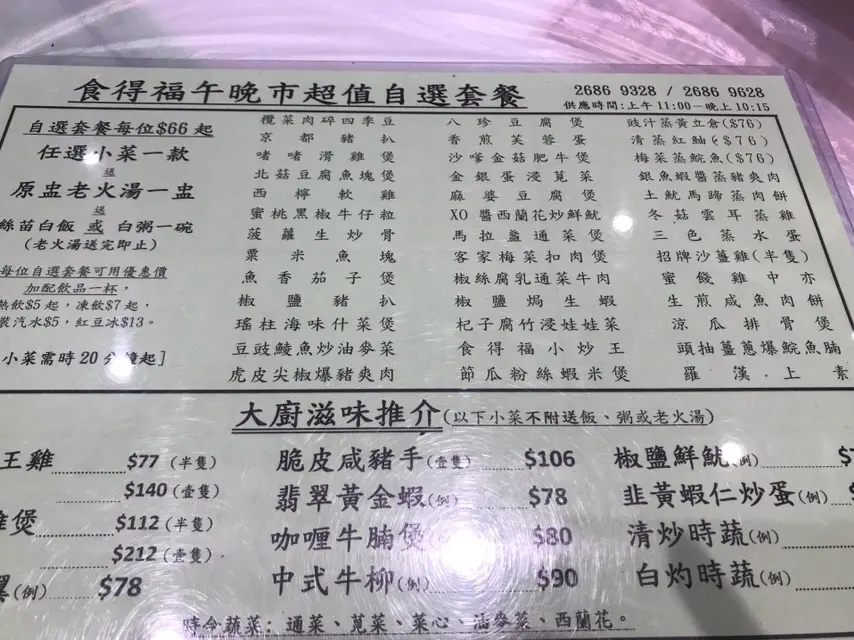 食得福午晚市超值自選套餐
2686 9328 / 2686 9628
供應時間:上午 11:00－晚上 10:15
自選套餐每位$66 起
任選小菜一款
送
原盅老火湯一盅
送
絲苗白飯 或 白粥一碗
(老火湯送完即止)
每位自選套餐可用優惠價
加配飲品一杯,
熱飲$5起，凍飲$7起，
裝汽水$5，紅豆冰$13。
小菜需時20分鐘起]
欖菜肉碎四季豆
京都豬扒
啫啫滑雞煲
北菇豆腐魚塊煲
西檸軟雞
蜜桃黑椒牛仔粒
菠蘿生炒骨
粟米魚塊
魚香茄子煲
椒鹽豬扒
瑤柱海味什菜煲
豆豉鯪魚炒油麥菜
虎皮尖椒爆豬爽肉
八珍豆腐煲
香煎芙蓉蛋
沙嗲金菇肥牛煲
金銀蛋浸莧菜
麻婆豆腐煲
XO醬西蘭花炒鮮魷
馬拉盞通菜煲
客家梅菜扣肉煲
椒絲腐乳通菜牛肉
椒鹽焗生蝦
杞子腐竹浸娃娃菜
食得福小炒王
節瓜粉絲蝦米煲
豉汁蒸黃立倉($76)
清蒸紅鮋($76)
梅菜蒸鯇魚($76)
銀魚蝦醬蒸豬爽肉
土魷馬蹄蒸肉餅
冬菇雲耳蒸雞
三色蒸水蛋
招牌沙薑雞(半隻)
蜜餞雞中亦
生煎咸魚肉餅
涼瓜排骨煲
頭抽薑蔥爆鯇魚腩
羅漢上素
大廚滋味推介(以下小菜不附送飯、粥或老火湯)
王雞 $77 (半隻)
$140 (壹隻)
煲 $112 (半隻)
$212 (壹隻)
(例) $78
脆皮咸豬手(壹隻) $106
翡翠黃金蝦(例) $78
咖喱牛腩煲 $80
中式牛柳(例) $90
椒鹽鮮魷(例)
韭黃蝦仁炒蛋(例)
清炒時蔬(例)
白灼時蔬(例)
時令蔬菜: 通菜、莧菜、菜心、油麥菜、西蘭花。